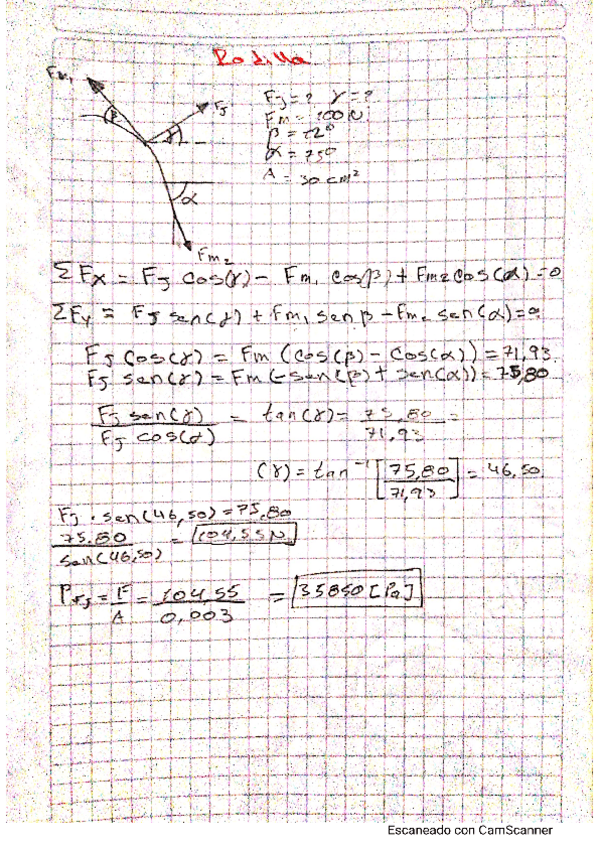 Rodilla
Fm₁
Fj
β
γ
α
Fm₂
Fj = ? γ = ?
Fm = 100 N
β = 12°
α = 750
A = 30 cm²
ΣFx = Fj cos(γ) - Fm₁ cos(β) + Fm₂ cos(α) = 0
ΣFy = Fj sen(γ) + Fm₁ sen β - Fm₂ sen(α) = 0
Fj cos(γ) = Fm (cos(β) - cos(α)) = 71,93
Fj sen(γ) = Fm (-sen(β) + sen(α)) = 75,80
Fj sen(γ) / Fj cos(γ) = tan(γ) = 75,80 / 71,93 =
(γ) = tan⁻¹ [75,80 / 71,93] = 46,50
Fj . sen(46,50) = 75,80
75.80 / sen(46,50) = 104,55 N
PFj = F / A = 104,55 / 0,003 = 35850 [Pa]
Escaneado con CamScanner